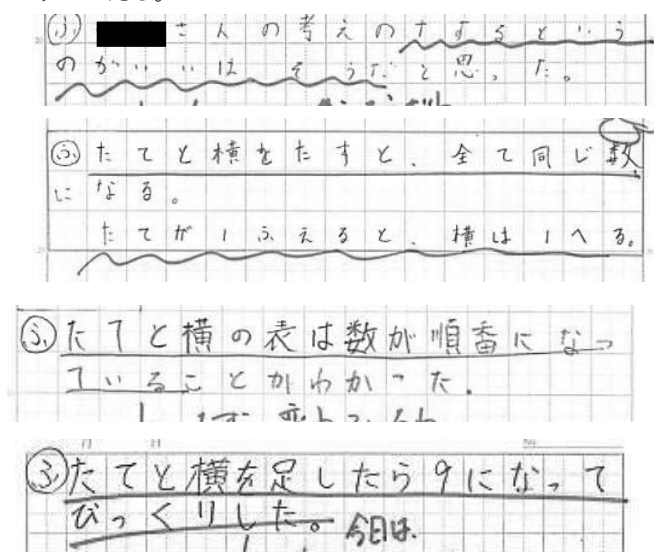 ㋫ さんの考えのナするという
のがいいはそうだと思った。
㋫ たてと横をたすと、全て同じ数
になる。
たてが1ふえると、横は1へる。
㋫たてと横の表は数が順番になっ
ていることがわかった。
㋫たてと横を足したら9になって
びっくりした。今日は、